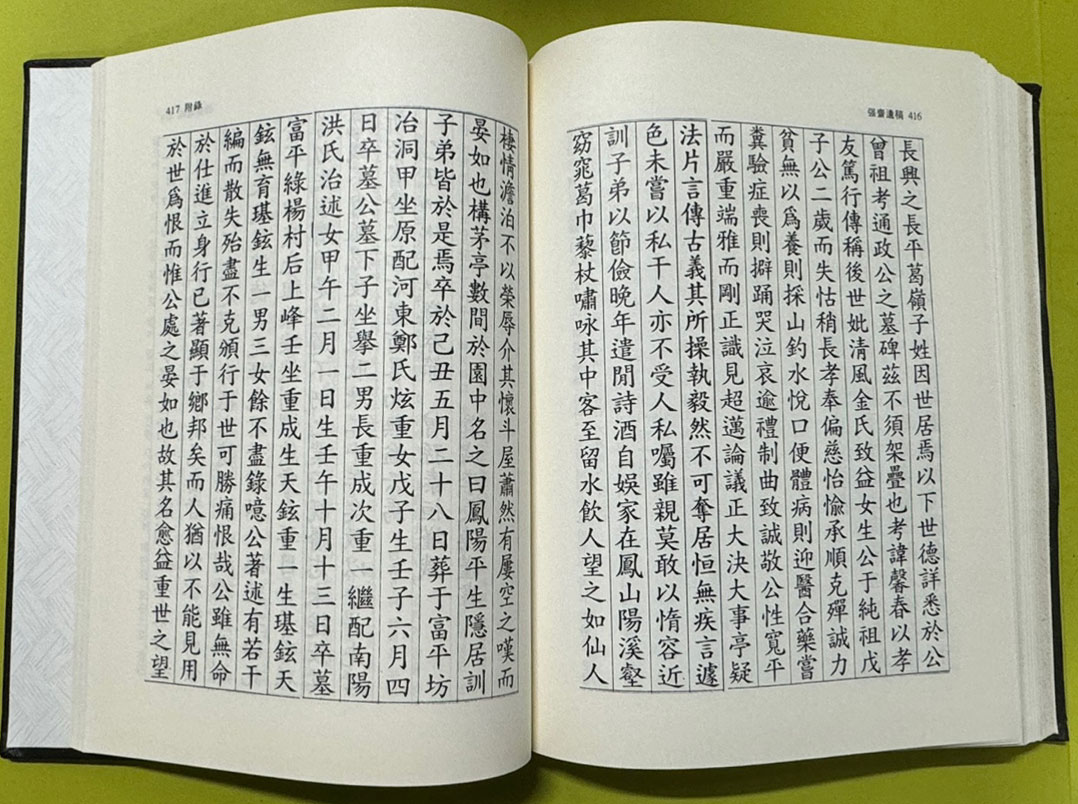 張齋遺稿 416
長興之長平葛嶺子姓因世居焉以下世德詳悉於公
曾祖考通政公之墓碑茲不須架疊也考諱馨春以孝
友篤行傳稱後世妣清風金氏致益女生公于純祖戊
子公二歲而失怙稍長孝奉偏慈怡愉承順克殫誠力
貧無以爲養則採山釣水悅口便體病則迎醫合藥嘗
糞驗症喪則擗踊哭泣哀逾禮制曲致誠敬公性寬平
而嚴重端雅而剛正識見超邁論議正大決大事亭疑
法片言傳古義其所操執毅然不可奪居恒無疾言遽
色未嘗以私干人亦不受人私囑雖親莫敢以惰容近
訓子弟以節儉晚年遣閒詩酒自娛家在鳳山陽溪壑
窈窕葛巾藜杖嘯咏其中客至留水飮人望之如仙人
417 附錄
棲情澹泊不以榮辱介其懷斗屋蕭然有屢空之嘆而
晏如也構茅亭數間於園中名之曰鳳陽平生隱居訓
子弟皆於是焉卒於己丑五月二十八日葬于富平坊
冶洞甲坐原配河東鄭氏炫重女戊子生壬子六月四
日卒墓公墓下子坐擧二男長重成次重一繼配南陽
洪氏治述女甲午二月一日生壬午十月十三日卒墓
富平綠楊村后上峰壬坐重成生天鉉重一生堪鉉天
鉉無育堪鉉生一男三女餘不盡錄噫公著述有若干
編而散失殆盡不克頒行于世可勝痛恨哉公雖無命
於仕進立身行已著顯于鄕邦矣而人猶以不能見用
於世爲恨而惟公處之晏如也故其名愈益重世之望